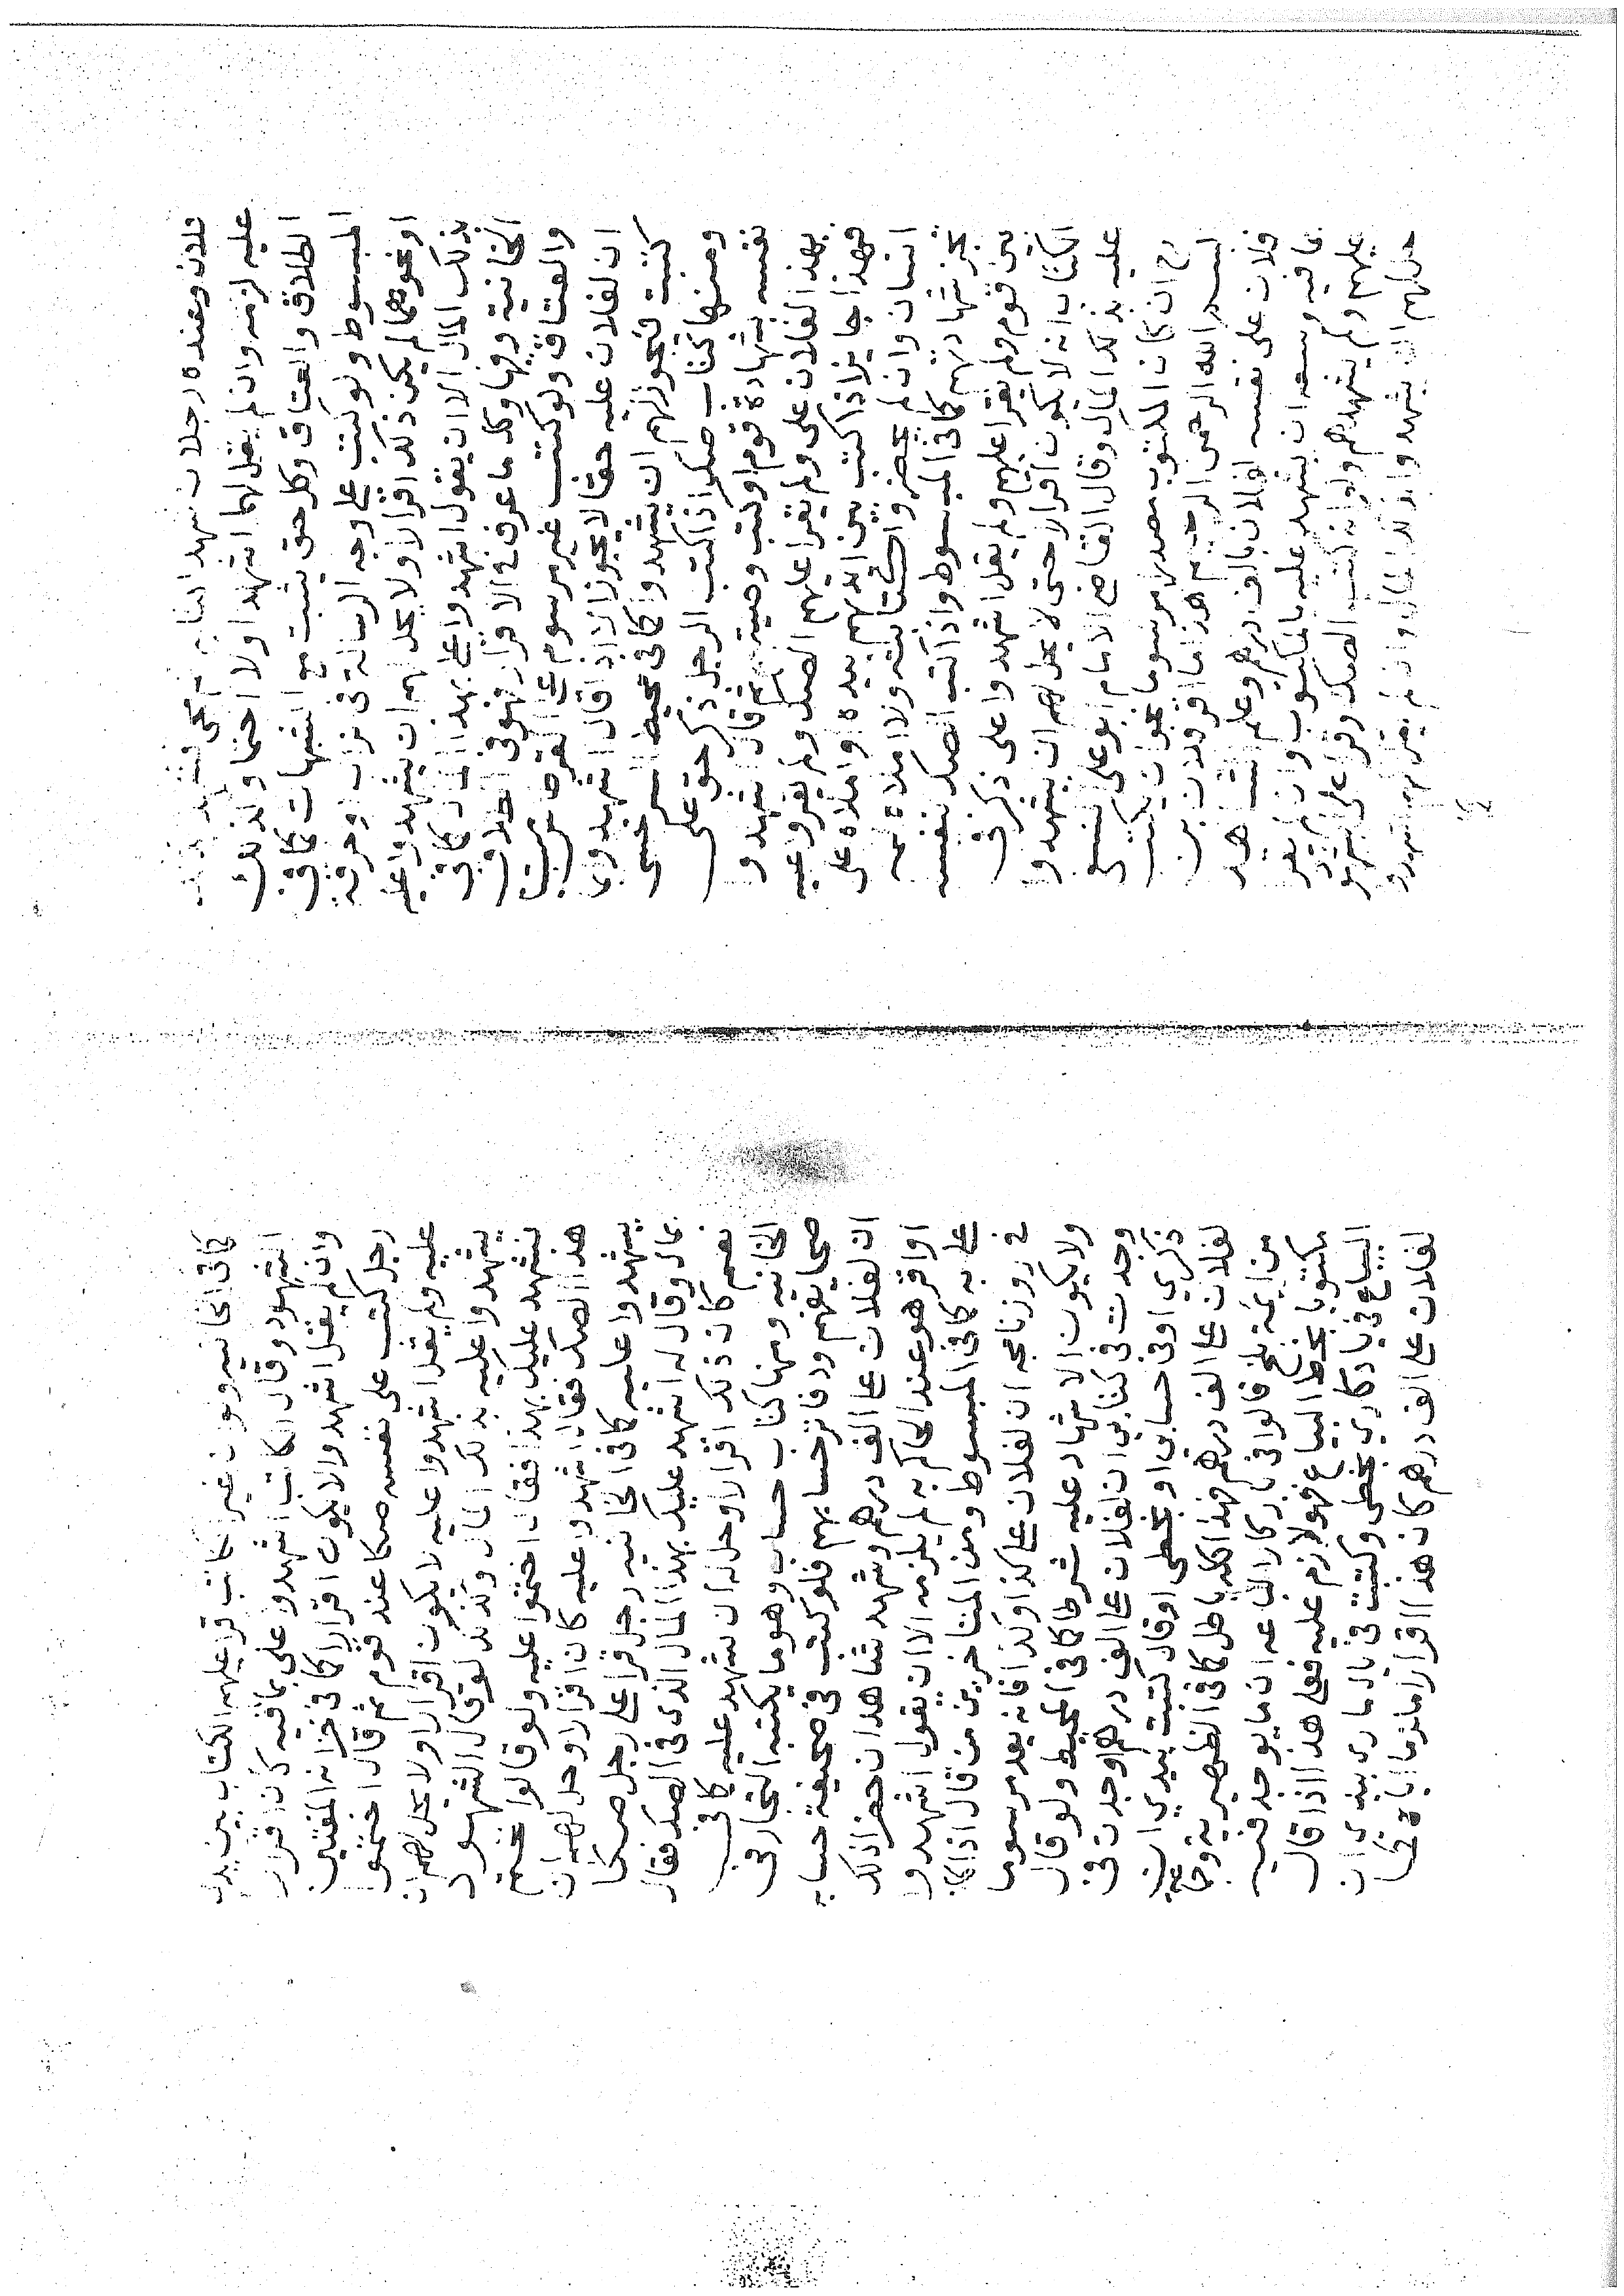 فلان وعنده رجلان شهدا
عليه لزمه وان لم يقل لهما اشهدا ولا اختما وكذلك
الطلاق والعتاق وكل حق يثبت مع الشبهات كما في
المبسوط ولو كتب على وجه الرسالة في تراب او خرقة
او نحوهما لم يكن ذلك اقرارا ولا يحل لهم ان يشهدوا عليه
بذلك المال الا ان يقول اشهدوا على بهذا المال كما في
الخانية وفيها وكل ما عرف في الاقرار فهو في الطلاق
والعتاق ولو كتب غير مرسوم على القرطاس
ان لفلان عليه حقا لا يجوز الا اذا قال اشهدوا بما
كتبت فيجوز لهم ان يشهدوا كما في محيط السرخسي
ومنها كتاب صك اذا كتب الرجل ذكر حق على
نفسه بشهادة قوم او كتب وصية ثم قال اشهدوا
بهذا لفلان على ولم يقرا عليهم الصك ولم يقروا عليه
فهذا جايز اذا كتب بين ايديهم بيده او املاه على
انسان وان لم يحضروا كتابته ولا املاه لم
تجز شهادتهم كما في المبسوط واذا كتب الصك بنفسه
بين قوم ولم يقرا عليهم ولم يقل اشهدوا على ذكر في
الكتاب انه لا يكون اقرارا حتى لا يحل لهم ان يشهدوا
عليه بذلك المال وقال القاضي الامام ابو على النسفي
رح ان كان المكتوب مصدرا مرسوما نحو ان يكتب
بسم الله الرحمن الرحيم هذا ما اقر فلان بن
فلان على نفسه لفلان بالف درهم وعلم الشاهد
بما فيه وسعه ان يشهد عليه بالمكتوب وان لم يقر
عليهم ولم يشهدهم ولو انه كتب الصك وقرا على الشهود
حل لهم ان يشهدوا بذلك المال وان لم يقل لهم اشهدوا
كما في الخانيه ولو ان غير الكاتب قرا عليهم الكتاب بين يدي
الشهود وقال الكاتب اشهدوا على بما فيه كان اقرارا
وان لم يقل اشهدوا لا يكون اقرارا كما في خزانه المفتيين
رجل كتب على نفسه صكا عند قوم ثم قال اختموا
عليه ولم يقل اشهدوا عليه لا يكون اقرارا ولا يحل لهم ان
يشهدوا عليه بذلك المال وكذلك لو قال الشهود
نشهد عليك بهذا فقال اختموا عليه ولو قالوا نختم
هذا الصك فقال اشهدوا عليه كان اقرارا وحل لهم ان
يشهدوا عليه كما في الخانيه رجل قرا على رجل صكا
بمال وقال له اشهد عليك بهذا المال الذي في الصك فقال
نعم كان ذلك اقرارا وحل له ان يشهد عليه كما في
الخانيه ومنها كتاب حساب وهو ما يكتبه التجار في
صحايفهم ودفاتر حسابهم فلو كتب في صحيفة حسابه
ان لفلان على الف درهم وشهد شاهدان حضرا ذلك
او اقر هو عند الحاكم به لم يلزمه الا ان يقول اشهدوا
على به كما في المبسوط ومن المتاخرين من قال اذا كان
في روزنامجه ان لفلان على كذا وكذا فانه يعد مرسوما
ولا يكون الاشهاد عليه شرطا كما في المحيط ولو قال
وجدت في كتابي ان لفلان على الف درهم او وجدت في
ذكري او في حسابي او بخطي او قال كتبت بيدي ان
لفلان على الف درهم فهذا كله باطل كما في الظهيرية وجماعة
من ايمة بلخ قالوا في يادكار الباعه ان ما يوجد فيه
مكتوبا بخط البياع فهو لازم عليه فعلى هذا اذا قال
البياع في يادكاري بخطي وكتبت في يادكاري بيدي ان
لفلان على الف درهم كان هذا اقرارا ملزما اياه كما